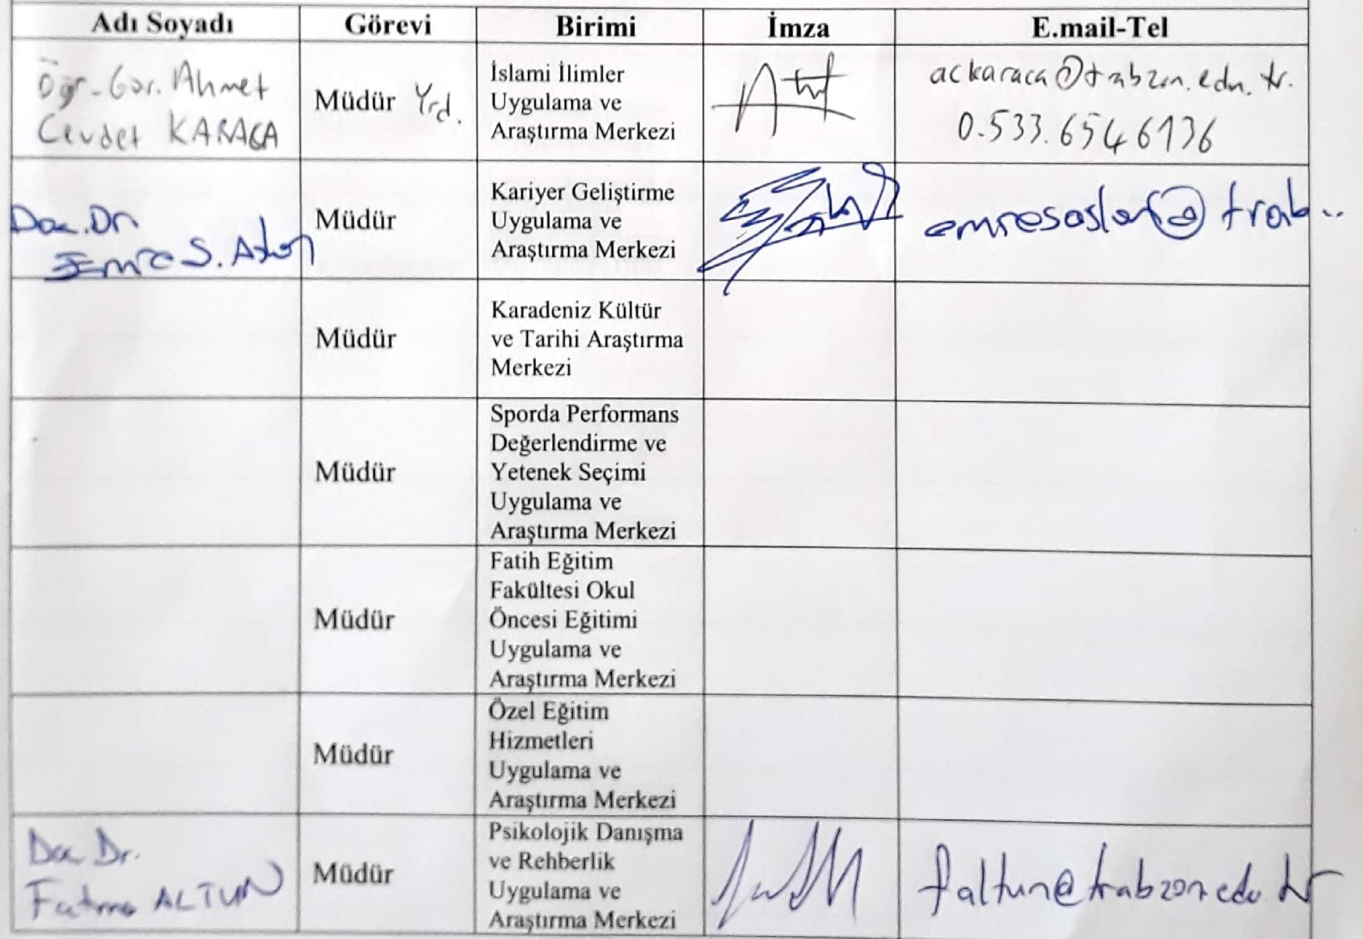 Adı Soyadı Görevi Birimi İmza E.mail-Tel
Öğr. Gör. Ahmet
Cevdet KARACA
Müdür Yrd.
İslami İlimler
Uygulama ve
Araştırma Merkezi
ackaraca@trabzon.edu.tr.
0.533.654 6136
Doç. Dr.
Emre S.
Müdür
Kariyer Geliştirme
Uygulama ve
Araştırma Merkezi
emresaslan@trab..
Müdür
Karadeniz Kültür
ve Tarihi Araştırma
Merkezi
Müdür
Sporda Performans
Değerlendirme ve
Yetenek Seçimi
Uygulama ve
Araştırma Merkezi
Müdür
Fatih Eğitim
Fakültesi Okul
Öncesi Eğitimi
Uygulama ve
Araştırma Merkezi
Müdür
Özel Eğitim
Hizmetleri
Uygulama ve
Araştırma Merkezi
Doç Dr.
Fatma ALTUN
Müdür
Psikolojik Danışma
ve Rehberlik
Uygulama ve
Araştırma Merkezi
faltun@trabzon.edu.tr